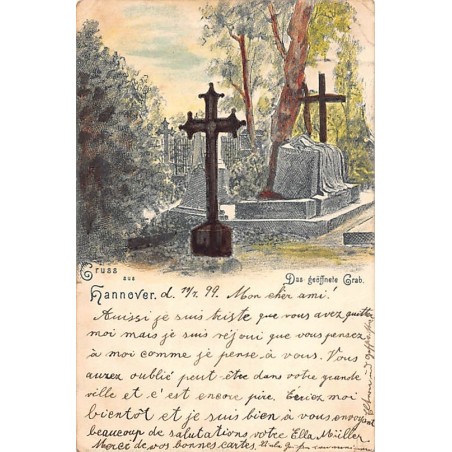 Gruss aus
Das geöffnete Grab.
Hannover. d. 11/7. 99. Mon cher ami!
Auissi je suis triste que vous avez quitter
moi mais je suis réjoui que vous pensez
à moi comme je pense à vous. Vous
aurez oublié peut-être dans votre grande
ville et c'est encore pire. Ecriez moi
bientôt et je suis bien à vous envoyant
beaucoup de salutations votre Ella Müller
Merci de vos bonnes cartes.